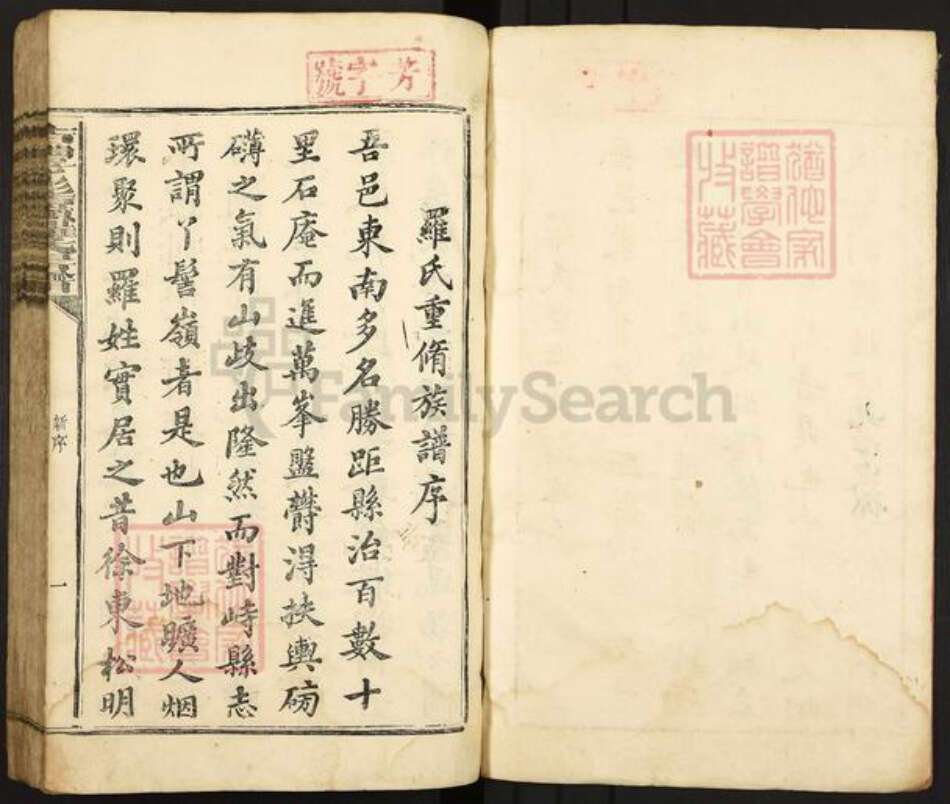 芳字號
羅氏重脩族譜序
吾邑東南多名勝距縣治百數十
里石庵而進萬峯盤欝淂扶輿磅
礴之氣有山歧出隆然而對峙縣志
所謂丫髻嶺者是也山下地曠人烟
環聚則羅姓實居之昔徐東松明
新序
一
譜學會
收藏
FamilySearch